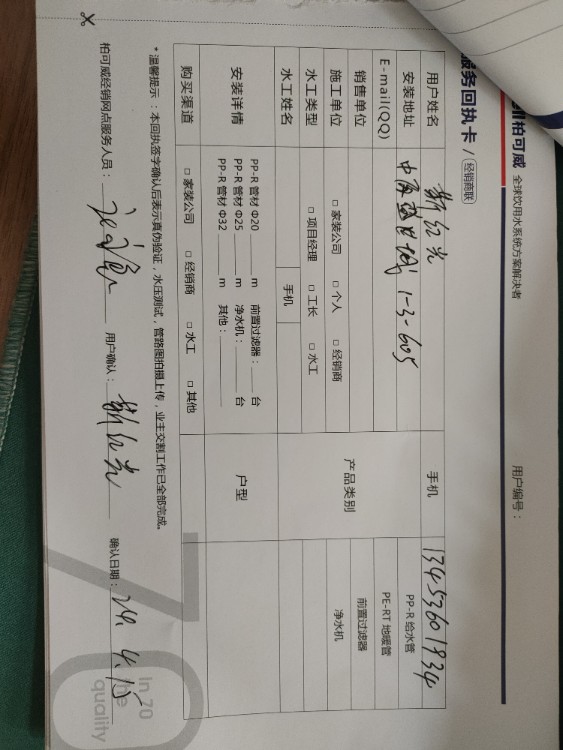 柏可威 全球饮用水系统方案解决者
服务回执卡 / 经销商联 用户编号：
用户姓名 靳红光 手机 13453601934
安装地址 1-3-605 PP-R 给水管
E-mail(QQ) PE-RT 地暖管
销售单位 产品类别 前置过滤器
施工单位 □ 家装公司 □ 个人 □ 经销商 净水机
水工类型 □ 项目经理 □ 工长 □ 水工
水工姓名 手机
安装详情 PP-R 管材 Φ20 ____ m 前置过滤器：____ 台 户型
PP-R 管材 Φ25 ____ m 净水机：____ 台
PP-R 管材 Φ32 ____ m 其他：____
购买渠道 □ 家装公司 □ 经销商 □ 水工 □ 其他
*温馨提示：本回执签字确认后表示真伪验证，水压测试，管路图拍摄上传，业主交割工作已全部完成。
柏可威经销网点服务人员： 用户确认：靳红光 确认日期：24. 4. 15
In 70
quality